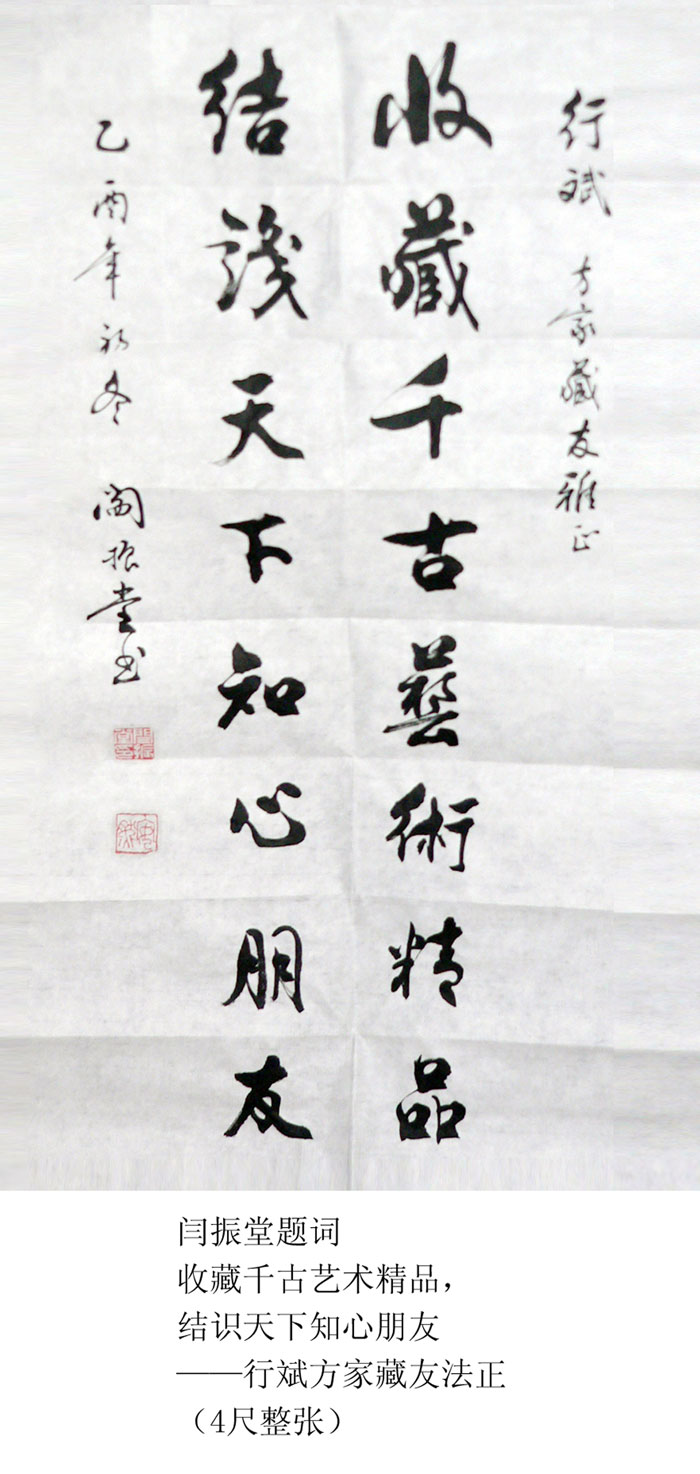 行斌 方家藏友雅正
收藏千古藝術精品
結識天下知心朋友
乙酉年初冬 閆振堂书
闫振堂题词
收藏千古艺术精品,
结识天下知心朋友
——行斌方家藏友法正
(4尺整张)